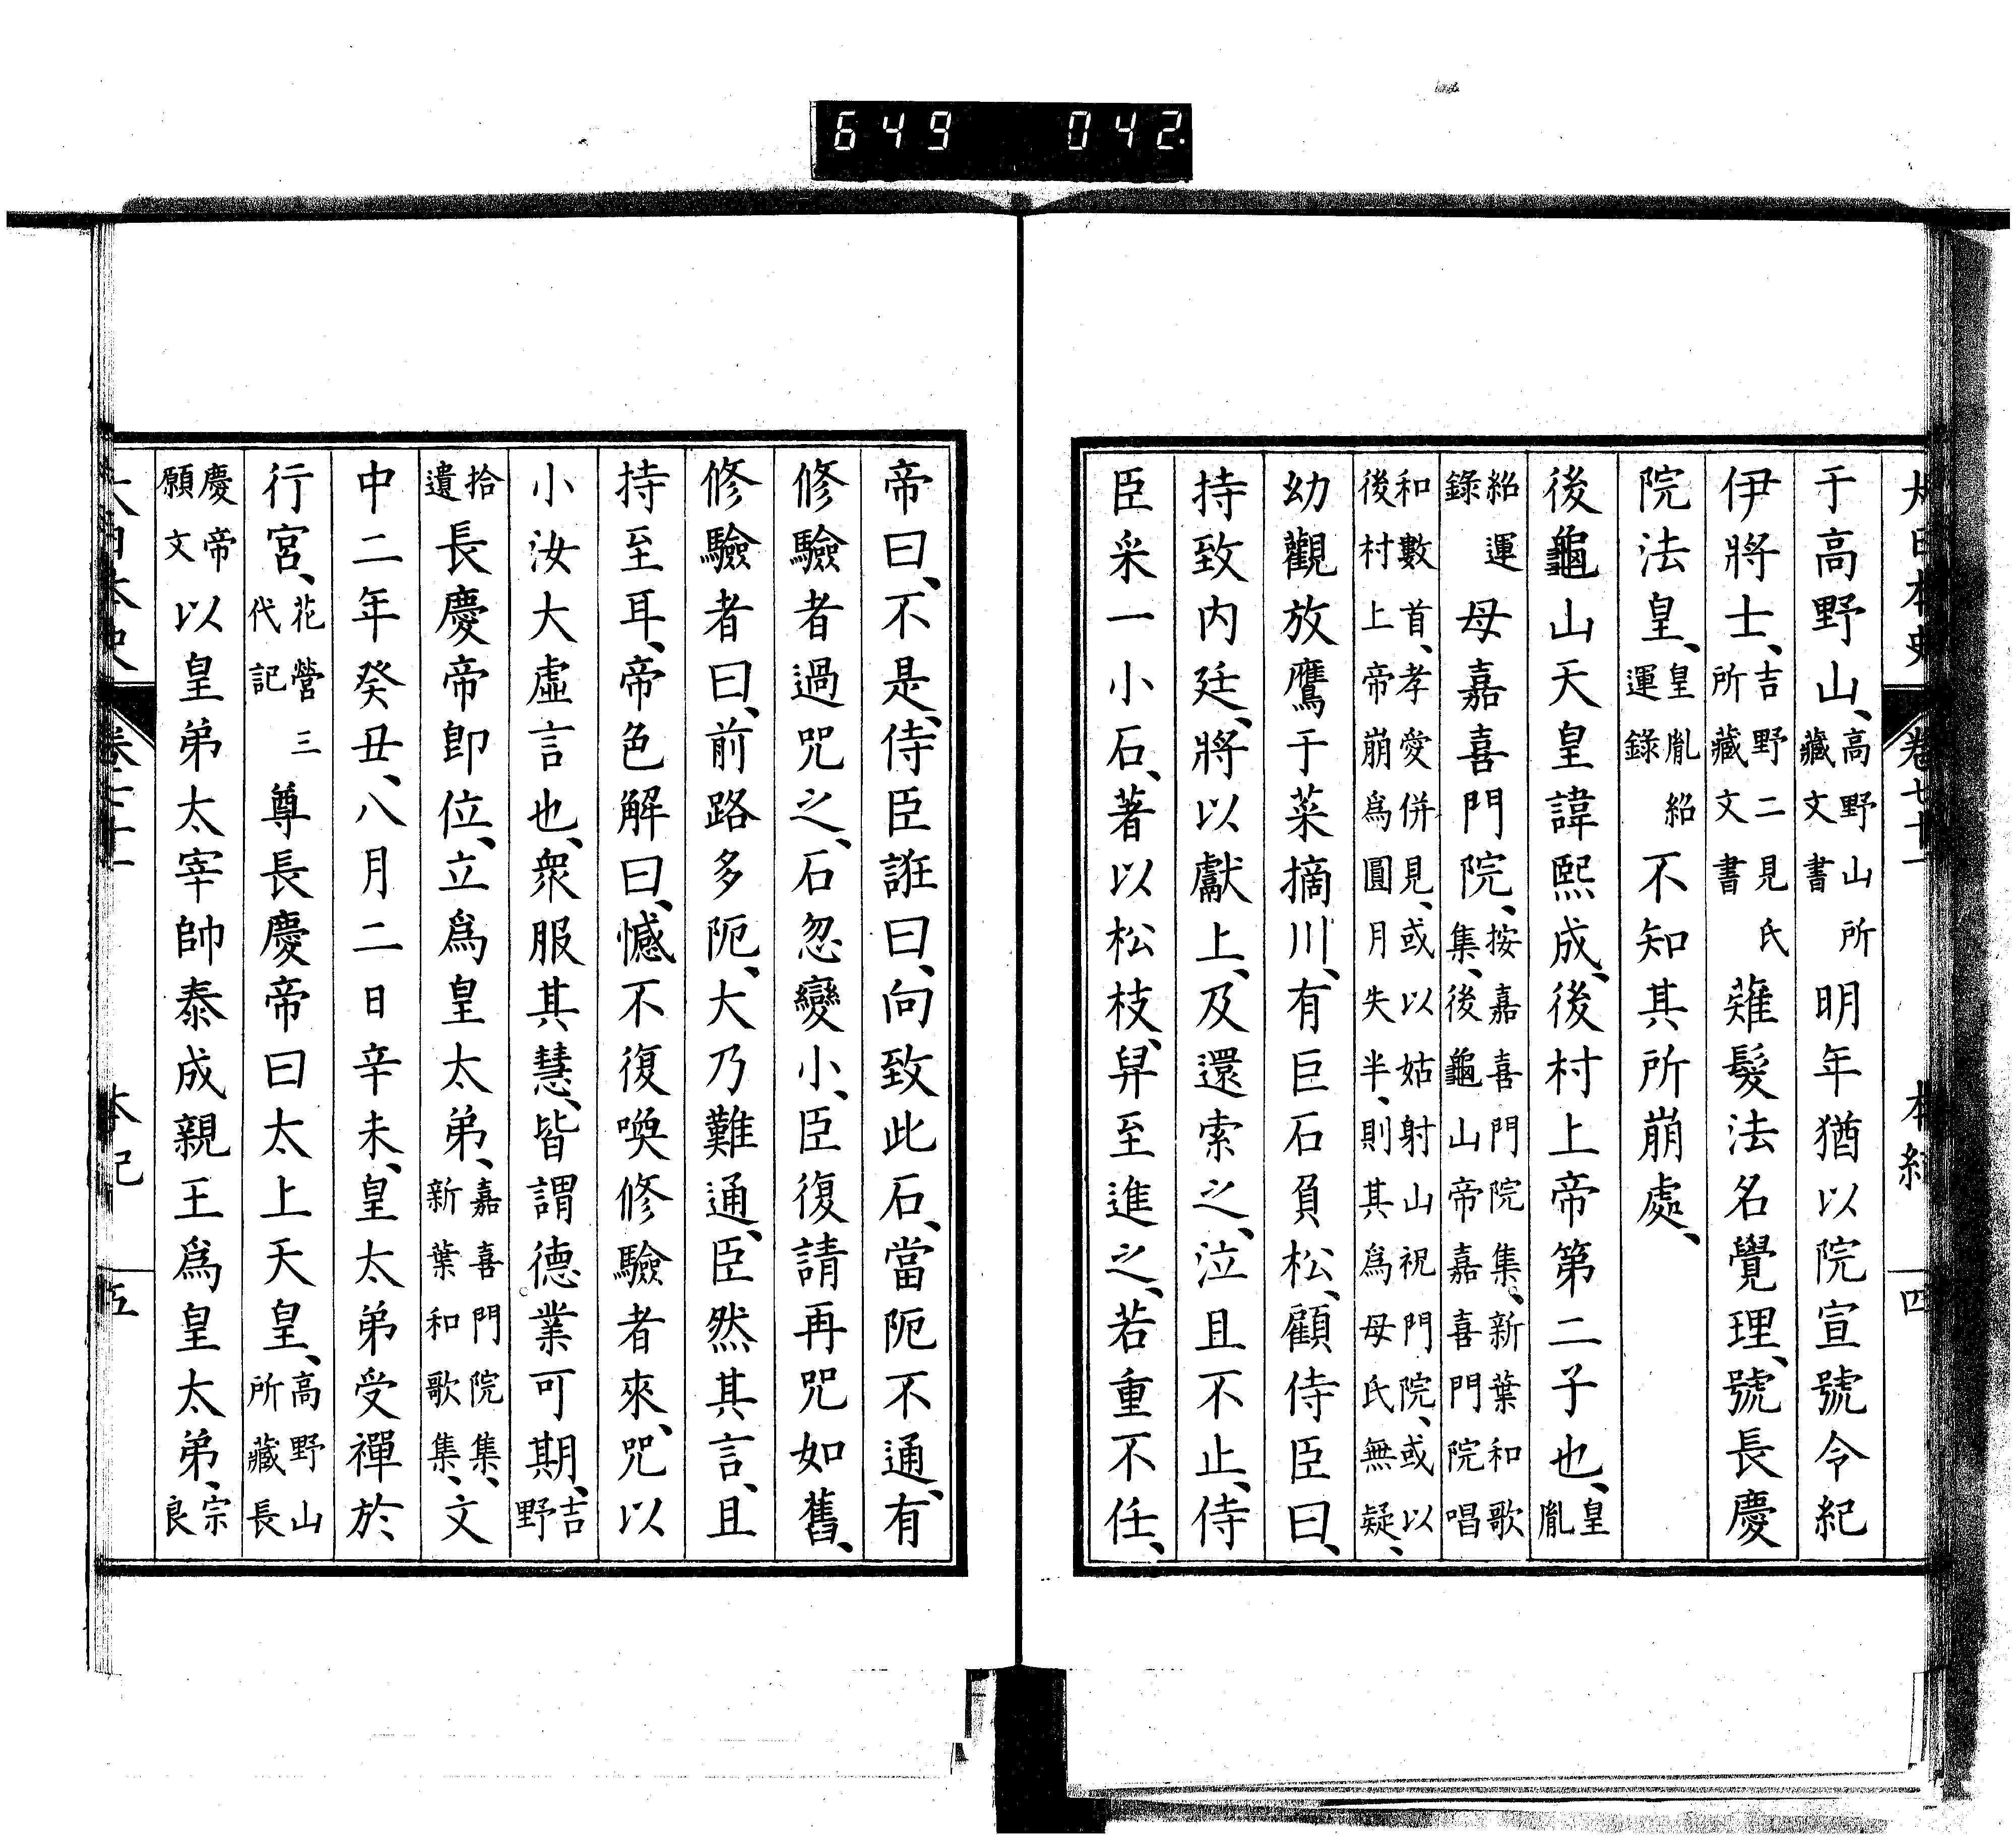 649 042
大日本史 卷七十一 本紀 四
于高野山、高野山所藏文書明年猶以院宣號令紀
伊將士、吉野二見氏所藏文書薙髮法名覺理、號長慶
院法皇、皇胤紹運錄不知其所崩處、
後龜山天皇諱熙成、後村上帝第二子也、皇胤
紹運錄母嘉喜門院、按嘉喜門院集、新葉和歌集、後龜山帝嘉喜門院唱
和數首、孝愛併見、或以姑射山祝門院、或以後村上帝崩爲圓月失半、則其爲母氏無疑、
幼觀放鷹于菜摘川、有巨石負松、顧侍臣曰、
持致内廷、將以獻上、及還索之、泣且不止、侍
臣采一小石、著以松枝、舁至進之、若重不任、
帝曰、不是、侍臣誑曰、向致此石、當阨不通、有
修驗者過咒之、石忽變小、臣復請再咒如舊、
修驗者曰、前路多阨、大乃難通、臣然其言、且
持至耳、帝色解曰、憾不復喚修驗者來、咒以
小汝大虛言也、衆服其慧、皆謂德業可期、吉野
拾遺長慶帝卽位、立爲皇太弟、嘉喜門院集、新葉和歌集、文
中二年癸丑、八月二日辛未、皇太弟受禪於
行宮、花營三代記尊長慶帝曰太上天皇、高野山所藏長
慶帝願文以皇弟太宰帥泰成親王爲皇太弟、宗良
大日本史 卷七十一 本紀 五